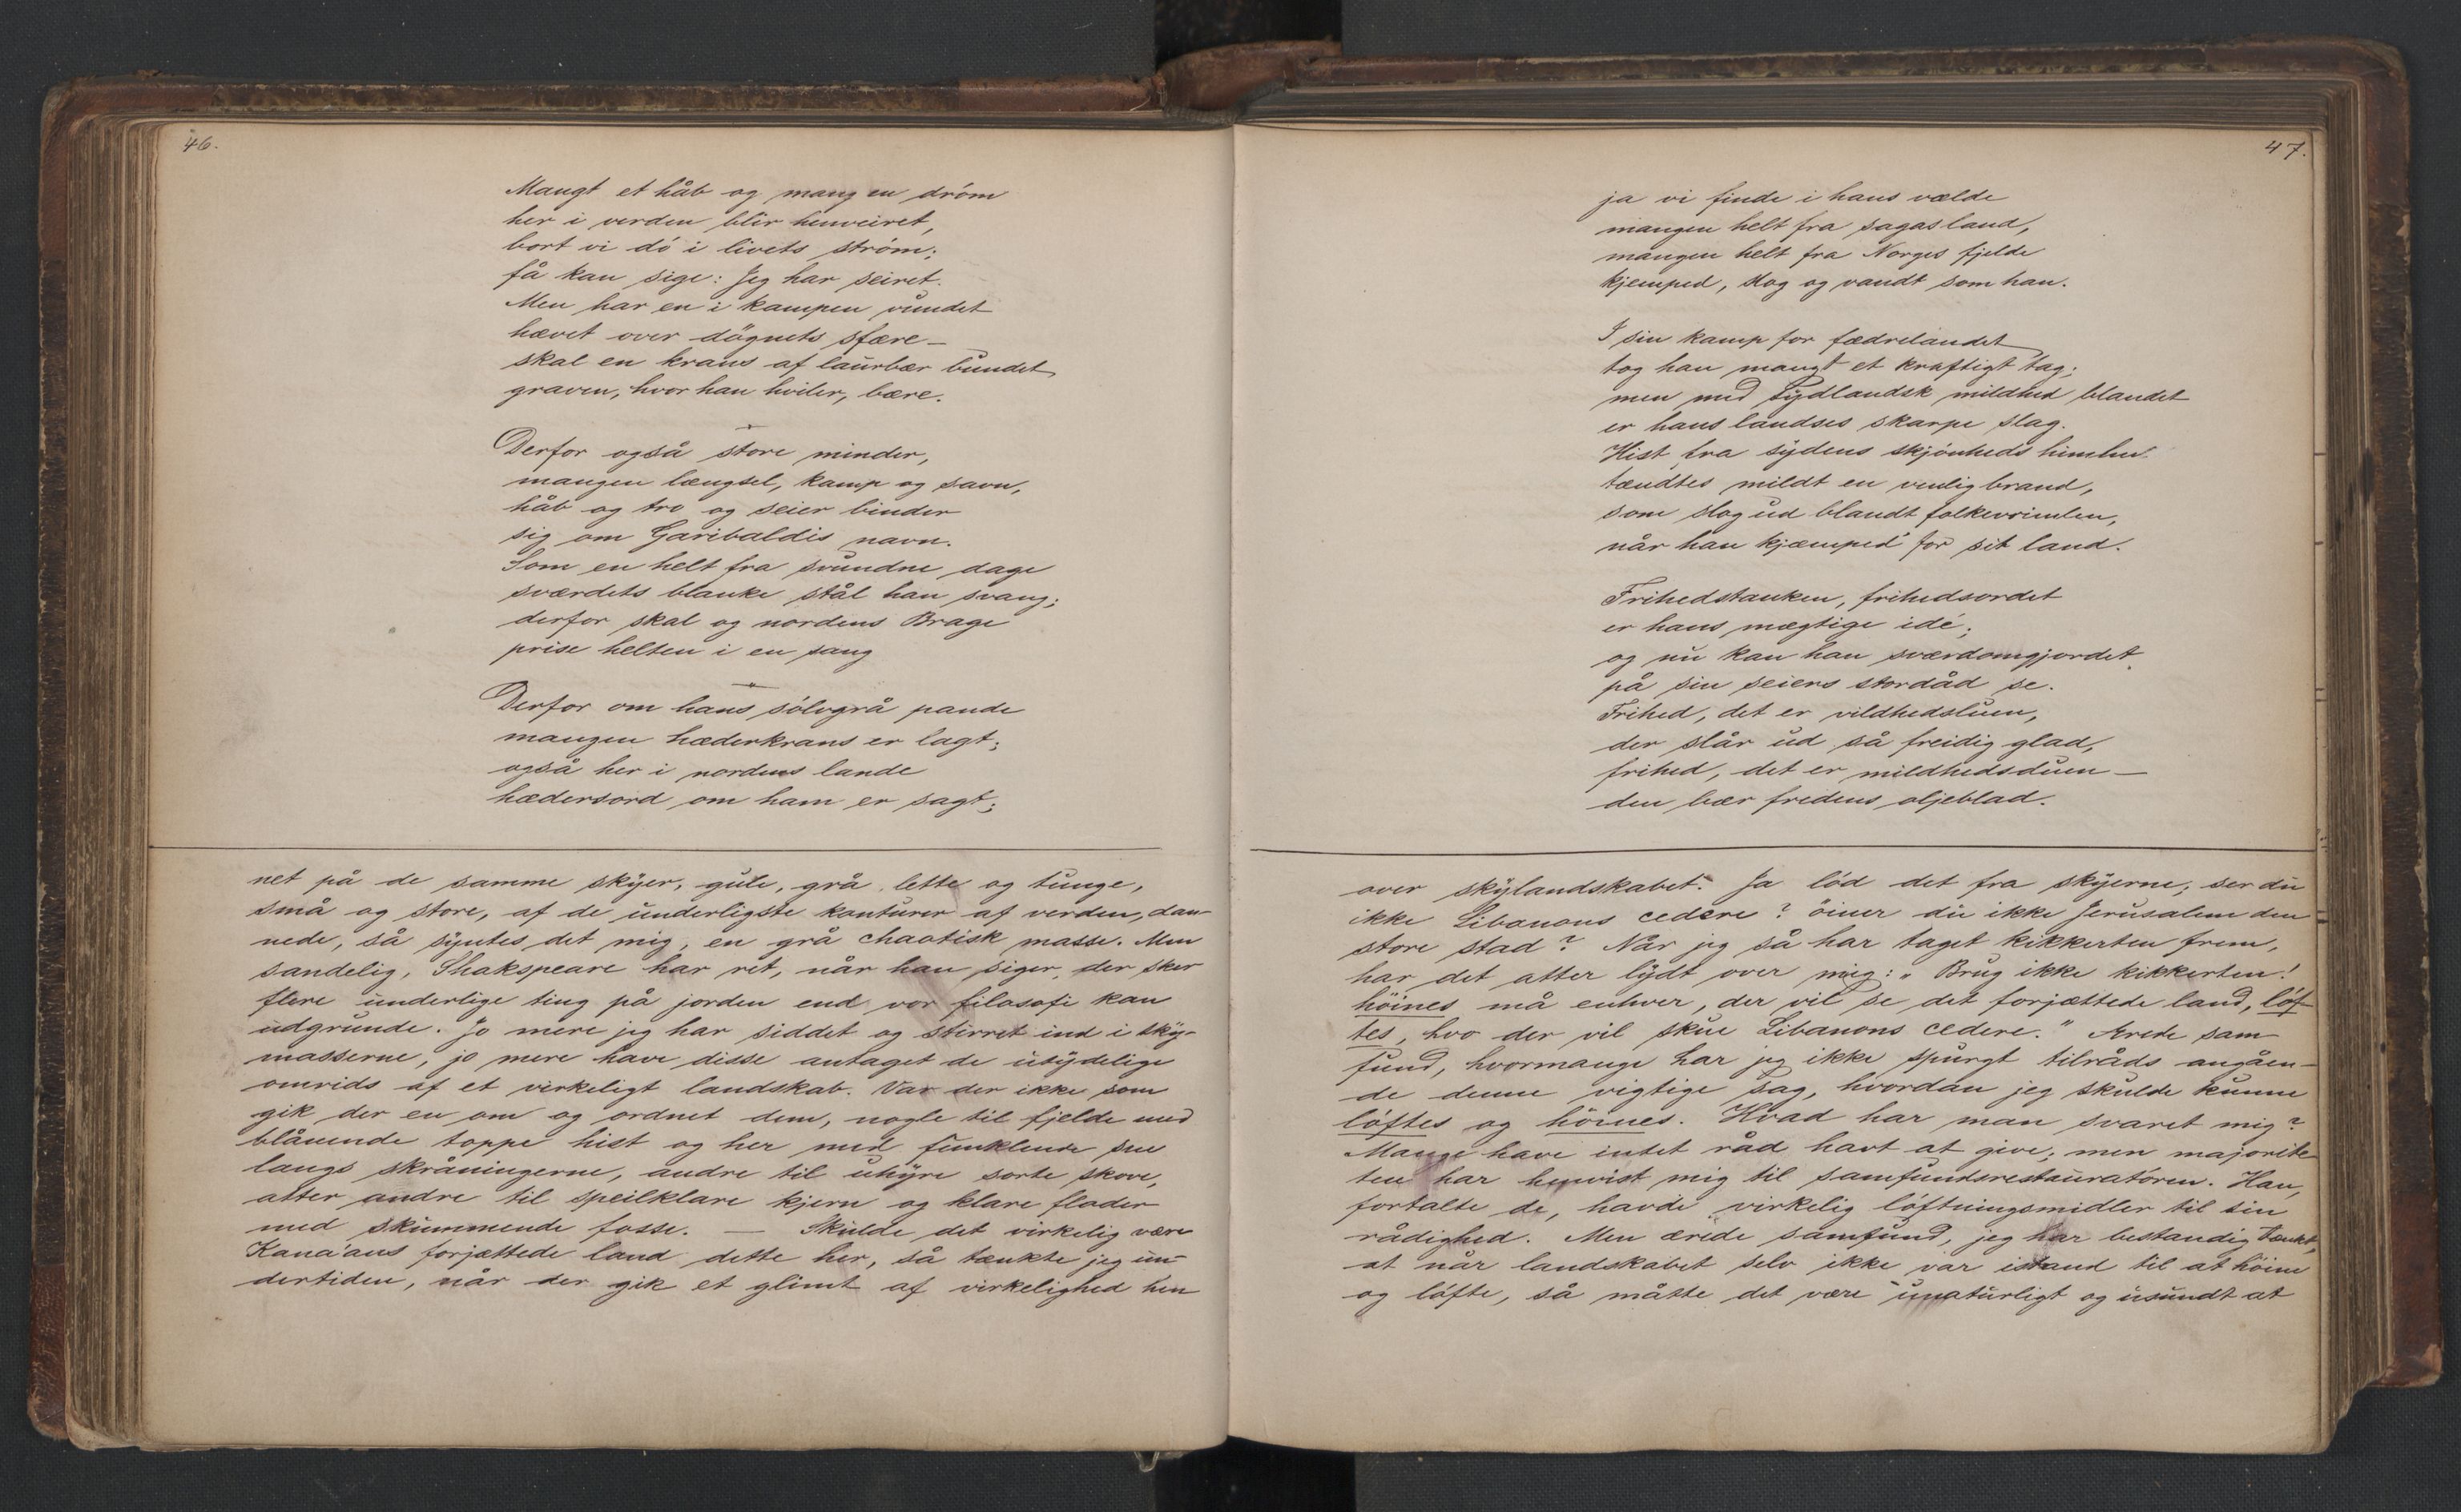 46.
Mangt et håb og mang en dröm
her i verden blir henveiret,
bort vi dö i livets ström;
få kan sige: Jeg har seiret.
Men har en i kampen vundet
hævet over dögnets sfære –
skal en krans af laurbær bundet
graven, hvor han hviler, bære.
Derfor også store minder,
mangen længsel, kamp og savn,
håb og tro og seier binder
sig om Garibaldis navn.
Som en helt fra svundne dage
sværdets blanke stål han svang;
derfor skal og nordens Brage
prise helten i en sang
Derfor om hans sölvgrå pande
mangen hæderkrans er lagt;
også her i nordens lande
hædersord om ham er sagt;
net på de samme skyer, gule, grå, lette og tunge,
små og store, af de underligste konturer af verden, dan-
nede, så syntes det mig, en grå chaotisk masse. Men
sandelig, Shakspeare har ret, når han siger, der sker
flere underlige ting på jorden end vor filosofi kan
udgrunde. Jo mere jeg har siddet og stirret ind i sky-
masserne, jo mere have disse antaget de utydelige
omrids af et virkeligt landskab. Var der ikke som
gik der en om og ordnet dem, nogle til fjelde med
blånende toppe hist og her med funklende sne
langs skråningerne, andre til uhyre sorte skove,
atter andre til speilklare kjern og klare floder
med skummende fosse. — Skulde det virkelig være
Kana'ans forjættede land dette her, så tænkte jeg un-
dertiden, når der gik et glimt af virkelighed hen
47.
ja vi finde i hans vælde
mangen helt fra sagas land,
mangen helt fra Norges fjelde
kjemped, slog og vandt som han.
I sin kamp for fædrelandet
tog han mangt et kraftigt tag;
men med sydlandsk mildhed blandet
er hans landses skarpe slag.
Hist fra sydens skjönheds himlen
tændtes mildt en venlig brand,
som slog ud blandt folkevrimlen,
når han kjæmped' for sit land.
Frihedstanken, frihedsordet
er hans mægtige idé;
og nu kan han sværdomgjordet
på sin seiers stordåd se.
Frihed, det er vildhedsluen,
der slår ud så freidig glad,
frihed, det er mildhedsduen —
den bær fredens oljeblad.
over skylandskabet. Ja löd det fra skyerne, ser du
ikke Libanons cedere? öiner du ikke Jerusalem den
store stad? Når jeg så har taget kikkerten frem,
har det atter lydt over mig: „Brug ikke kikkerten!
höines må enhver, der vil se det forjættede land, löf-
tes, hvo der vil skue Libanons cedere." Ærede sam-
fund, hvormange har jeg ikke spurgt tilråds angåen-
de denne vigtige sag, hvordan jeg skulde kunne
löftes og höines. Hvad har man svaret mig?
Mange have intet råd havt at give; men majorite-
ten har henvist mig til samfundsrestauratören. Han,
fortalte de, havde virkelig löftningsmidler til sin
rådighed. Men ærede samfund, jeg har bestandig tænkt,
at når landskabet selv ikke var istand til at höine
og löfte, så måtte det være unaturligt og usundt at